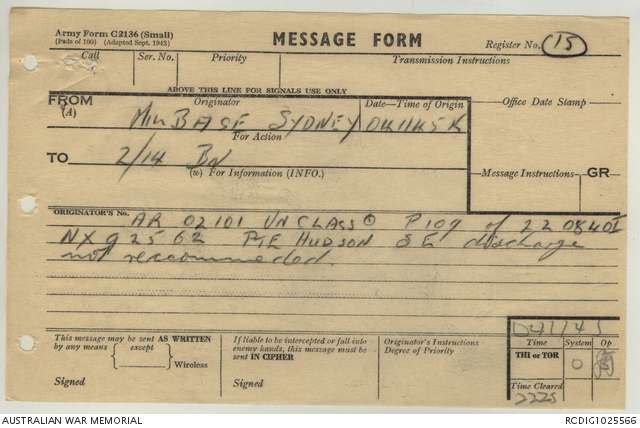 Army Form C2136 (Small)
(Pads of 100) (Adapted Sept. 1942)
MESSAGE FORM
Register No. 15
Call Ser. No. Priority Transmission Instructions
ABOVE THIS LINE FOR SIGNALS USE ONLY
FROM
(A)
Originator Date—Time of Origin Office Date Stamp
Mil BASE SYDNEY
For Action
TO 2/14 BN
(w) For Information (INFO.) Message Instructions GR
ORIGINATOR'S No.
AR 02101 UNCLASS P109 of 220840
NX92562 PTE HUDSON S E discharge
not reccommeded.
This message may be sent AS WRITTEN
by any means except
Wireless
Signed
If liable to be intercepted or fall into
enemy hands, this message must be
sent IN CIPHER
Signed
Originator's Instructions
Degree of Priority
Time System Op
THI or TOR O
Time Cleared
2225
AUSTRALIAN WAR MEMORIAL RCDIG1025566